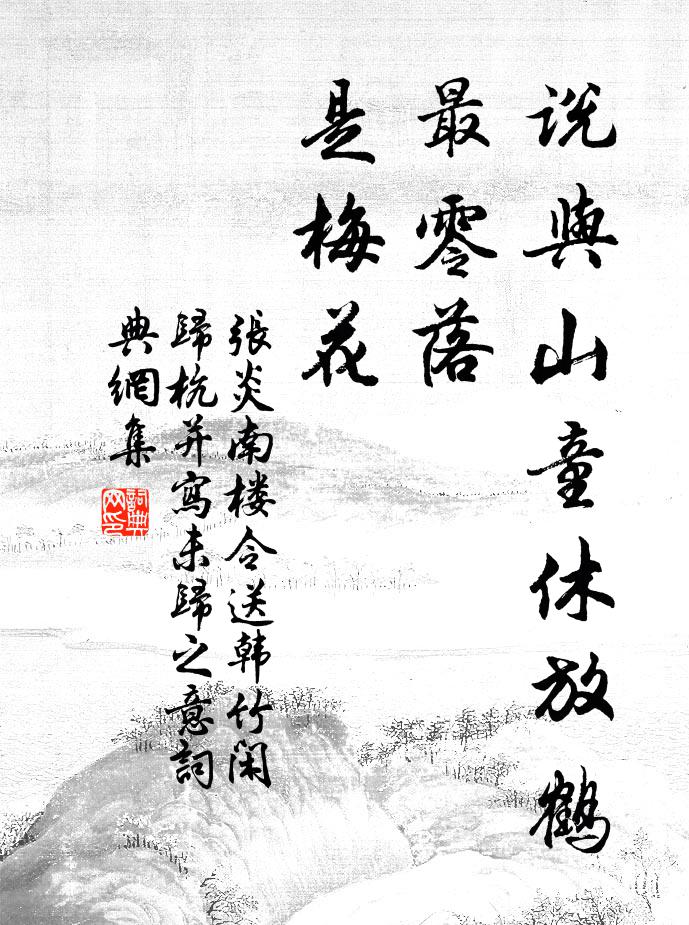 説與山童休放鶴
最零落
是梅花
張炎南楼令送韩竹闲
歸杭并寫未歸之意詞
典網集
詞典網印